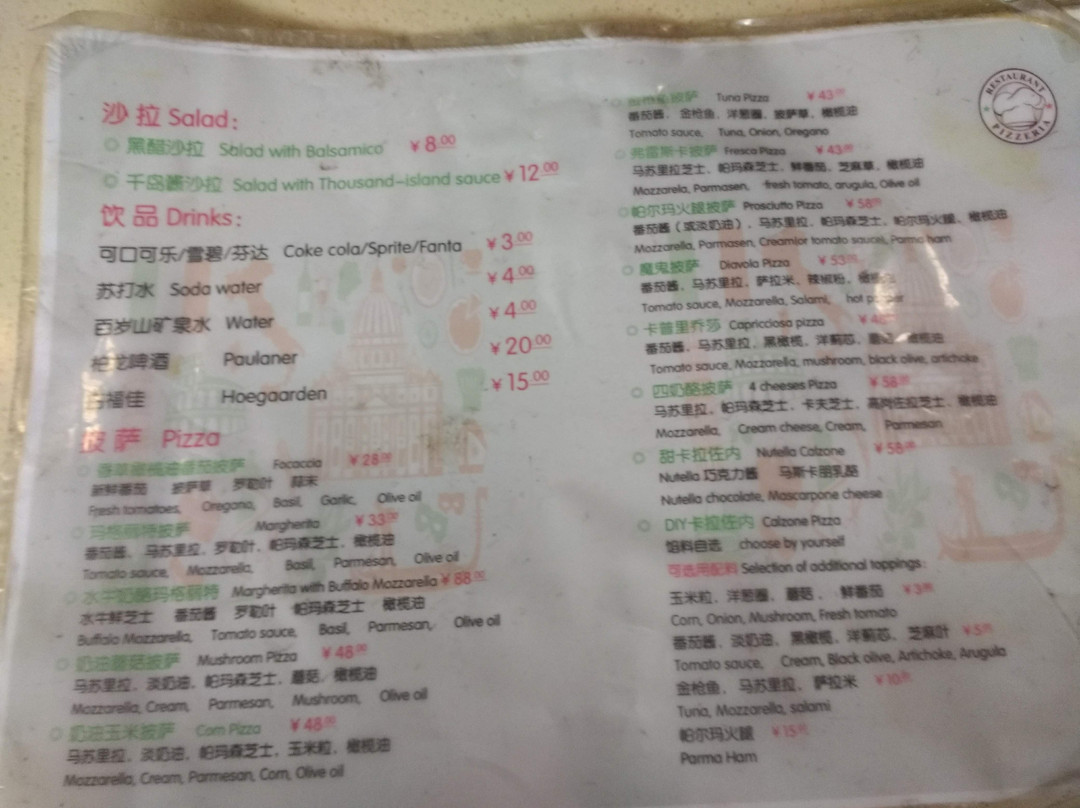 沙拉 Salad:
黑醋沙拉 Salad with Balsamico ¥8.00
千岛酱沙拉 Salad with Thousand-island sauce ¥12.00
饮品 Drinks:
可口可乐/雪碧/芬达 Coke cola/Sprite/Fanta ¥3.00
苏打水 Soda water ¥4.00
百岁山矿泉水 Water ¥4.00
柏龙啤酒 Paulaner ¥20.00
福佳 Hoegaarden ¥15.00
披萨 Pizza
香草橄榄油番茄披萨 Focaccia ¥28.00
新鲜番茄 披萨草 罗勒叶 蒜末
Fresh tomatoes, Oregano, Basil, Garlic, Olive oil
玛格丽特披萨 Margherita ¥33.00
番茄酱、马苏里拉、罗勒叶、帕玛森芝士、橄榄油
Tomato sauce, Mozzarella, Basil, Parmesan, Olive oil
水牛奶酪玛格丽特 Margherita with Buffalo Mozzarella ¥88.00
水牛鲜芝士 番茄酱 罗勒叶 帕玛森芝士 橄榄油
Buffalo Mozzarella, Tomato sauce, Basil, Parmesan, Olive oil
奶油蘑菇披萨 Mushroom Pizza ¥48.00
马苏里拉、淡奶油、帕玛森芝士、蘑菇、橄榄油
Mozzarella, Cream, Parmesan, Mushroom, Olive oil
奶油玉米披萨 Corn Pizza ¥48.00
马苏里拉、淡奶油、帕玛森芝士、玉米粒、橄榄油
Mozzarella, Cream, Parmesan, Corn, Olive oil
披萨 Tuna Pizza ¥43.00
番茄酱、金枪鱼、洋葱圈、披萨草、橄榄油
Tomato sauce, Tuna, Onion, Oregano
弗雷斯卡披萨 Fresca Pizza ¥43.00
马苏里拉芝士、帕玛森芝士、鲜番茄、芝麻草、橄榄油
Mozzarela, Parmasen, fresh tomato, arugula, Olive oil
帕尔玛火腿披萨 Prosciutto Pizza ¥58.00
番茄酱（或淡奶油）、马苏里拉、帕玛森芝士、帕尔玛火腿、橄榄油
Mozzarella, Parmasen, Cream(or tomato sauce), Parma ham
魔鬼披萨 Diavola Pizza ¥53.00
番茄酱、马苏里拉、萨拉米、辣椒粉、橄榄
Tomato sauce, Mozzarella, Salami, hot
卡普里乔莎 Capricciosa pizza
番茄酱、马苏里拉、黑橄榄、洋蓟芯、蘑菇、橄榄油
Tomato sauce, Mozzarella, mushroom, black olive, artichoke
四奶酪披萨 4 cheeses Pizza ¥58.00
马苏里拉、帕玛森芝士、卡夫芝士、高尚佐拉芝士、橄榄油
Mozzarella, Cream cheese, Cream, Parmesan
甜卡拉佐内 Nutella Calzone ¥58.00
Nutella 巧克力酱 马斯卡朋乳酪
Nutella chocolate, Mascarpone cheese
DIY卡拉佐内 Calzone Pizza
馅料自选 choose by yourself
可选用配料 Selection of additional toppings:
玉米粒、洋葱圈、蘑菇、鲜番茄 ¥3.00
Corn, Onion, Mushroom, Fresh tomato
番茄酱、淡奶油、黑橄榄、洋蓟芯、芝麻叶 ¥5.00
Tomato sauce, Cream, Black olive, Artichoke, Arugula
金枪鱼、马苏里拉、萨拉米 ¥10.00
Tuna, Mozzarella, salami
帕尔玛火腿 ¥15.00
Parma Ham
RESTAURANT
PIZZERIA